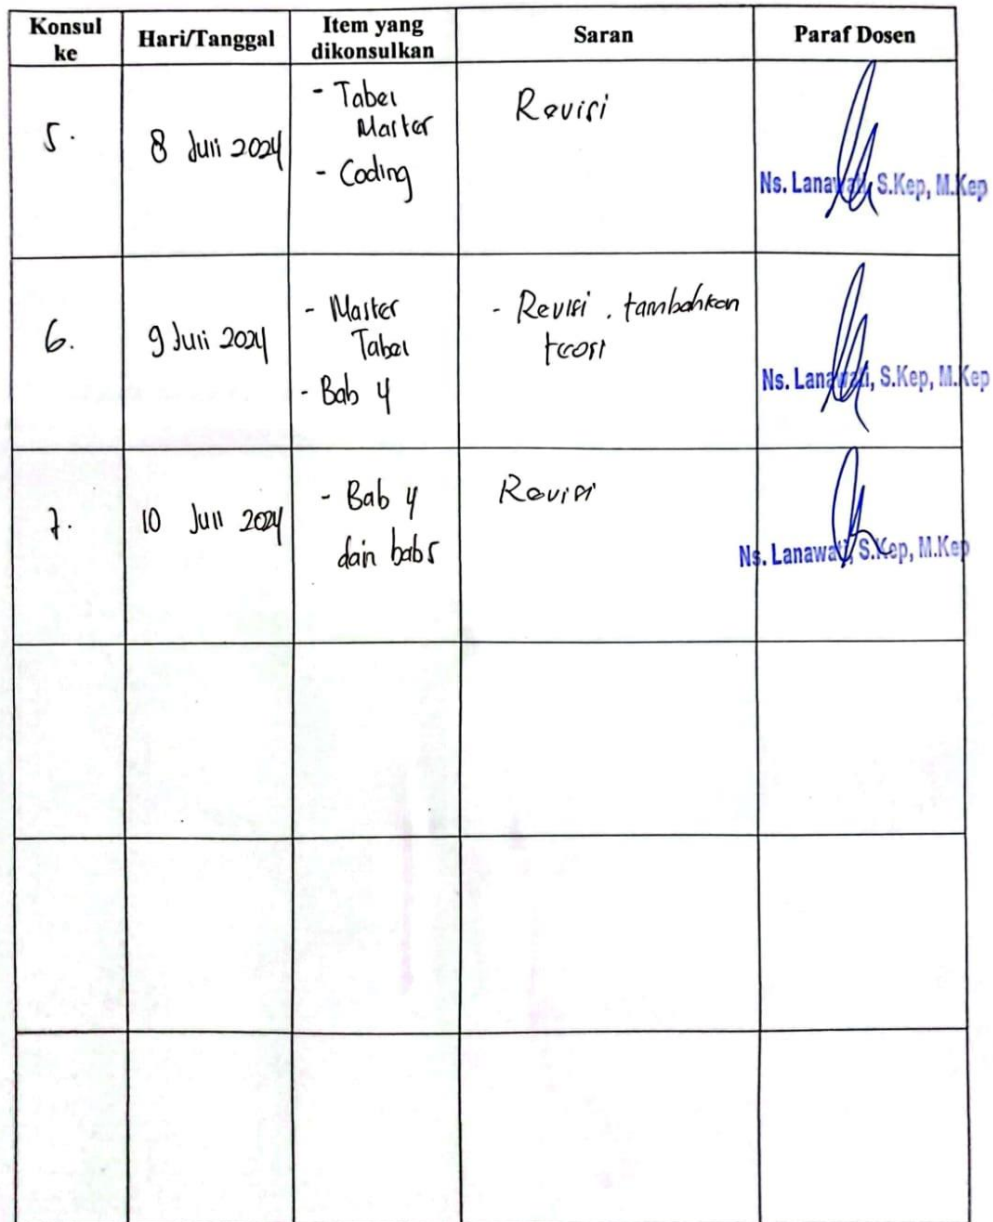 Konsul ke Hari/Tanggal Item yang dikonsulkan Saran Paraf Dosen
5. 8 Juli 2024 - Tabel Master Revisi
- Coding
Ns. Lanawati, S.Kep, M.Kep
6. 9 Juli 2024 - Master Tabel - Revisi . tambahkan teori
- Bab 4
Ns. Lanawati, S.Kep, M.Kep
7. 10 Juli 2024 - Bab 4 Revisi
dan bab 5
Ns. Lanawati, S.Kep, M.Kep